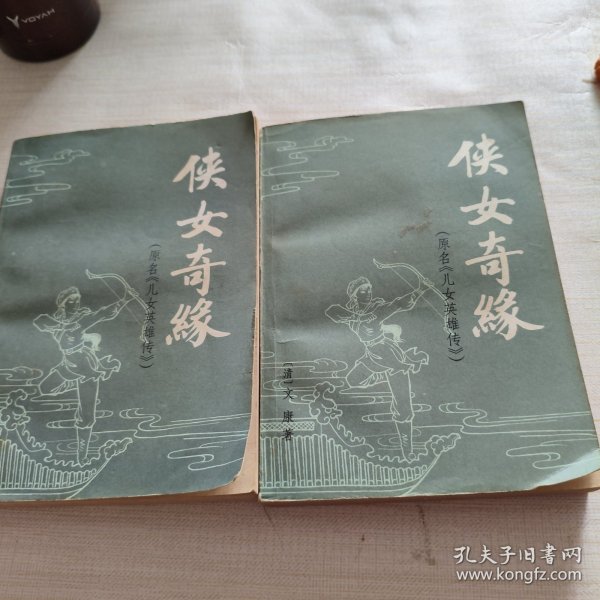 VOYAH
侠女奇緣
(原名《儿女英雄传》)
侠女奇緣
(原名《儿女英雄传》)
〔清〕文康 著
孔夫子旧书网
www.kongfz.com